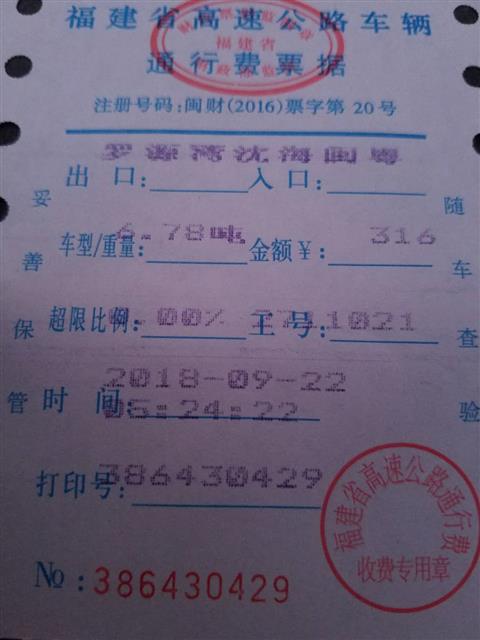 福建省高速公路车辆
通行费票据
福建省
注册号码:闽财(2016)票字第 20号
罗源湾沈海闽粤
出口: 入口:
6.78吨 316
车型/重量: 金额¥:
0.00% 2711021
超限比例: 工号:
2018-09-22
05:24:22
时间:
386430429
打印号:
№:386430429
妥善保管
随车查验
福建省高速公路通行费
收费专用章